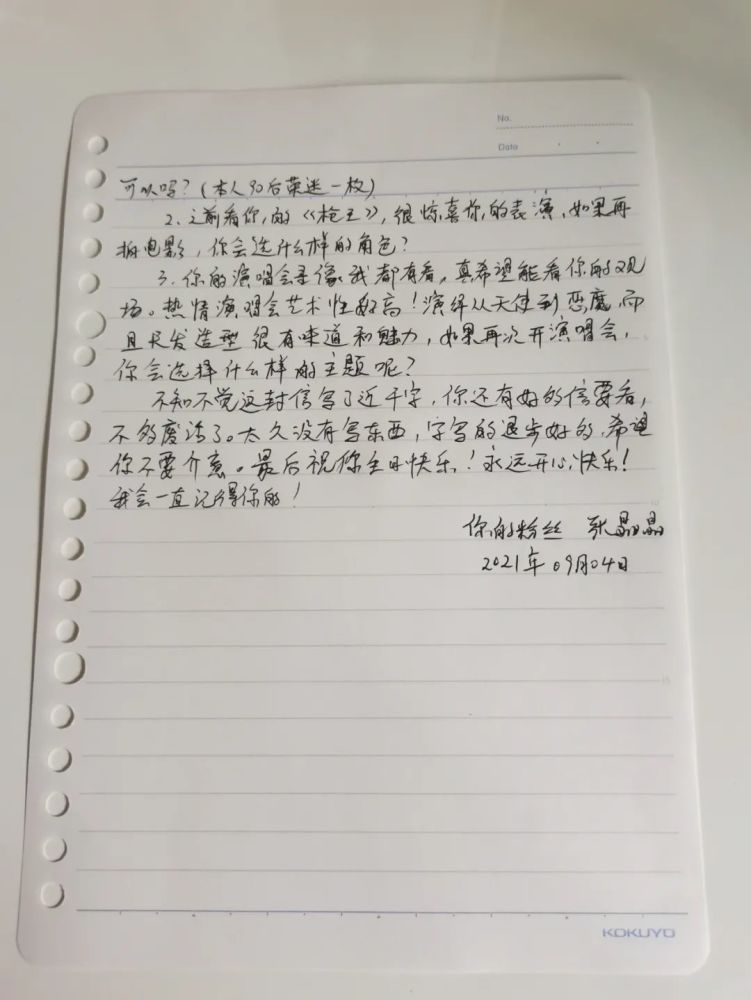 No.
Date
可以吗？（本人90后荣迷一枚）
2、之前看你的《枪王》，很惊喜你的表演，如果再
拍电影，你会选什么样的角色？
3、你的演唱会录像我都有看，真希望能看你的现
场。热情演唱会艺术性好高！演绎从天使到恶魔，而
且长发造型很有味道和魅力，如果再次开演唱会，
你会选择什么样的主题呢？
不知不觉这封信写了近千字，你还有好的信要看，
不多废话了。太久没有写东西，字写的退步好的，希望
你不要介意。最后祝你生日快乐！永远开心快乐！
我会一直记得你的！
你的粉丝 张晶晶
2021年09月04日
KOKUYO